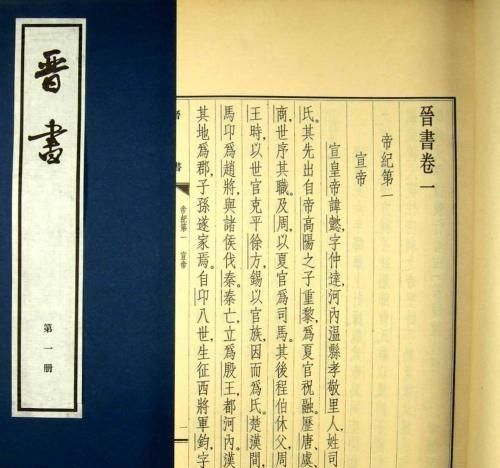 晋書
第一册
晉書卷一
帝紀第一
宣帝
宣皇帝諱懿，字仲達，河內溫縣孝敬里人，姓司
氏。其先出自帝高陽之子重黎，爲夏官祝融。歷唐、虞
商，世序其職。及周，以夏官爲司馬。其後程伯休父，周
王時，以世官克平徐方，錫以官族，因而爲氏。楚漢間
馬卬爲趙將，與諸侯伐秦。秦亡，立爲殷王，都河內。漢
其地爲郡，子孫遂家焉。自卬八世，生征西將軍鈞，字
書
帝紀第一 宣帝
一